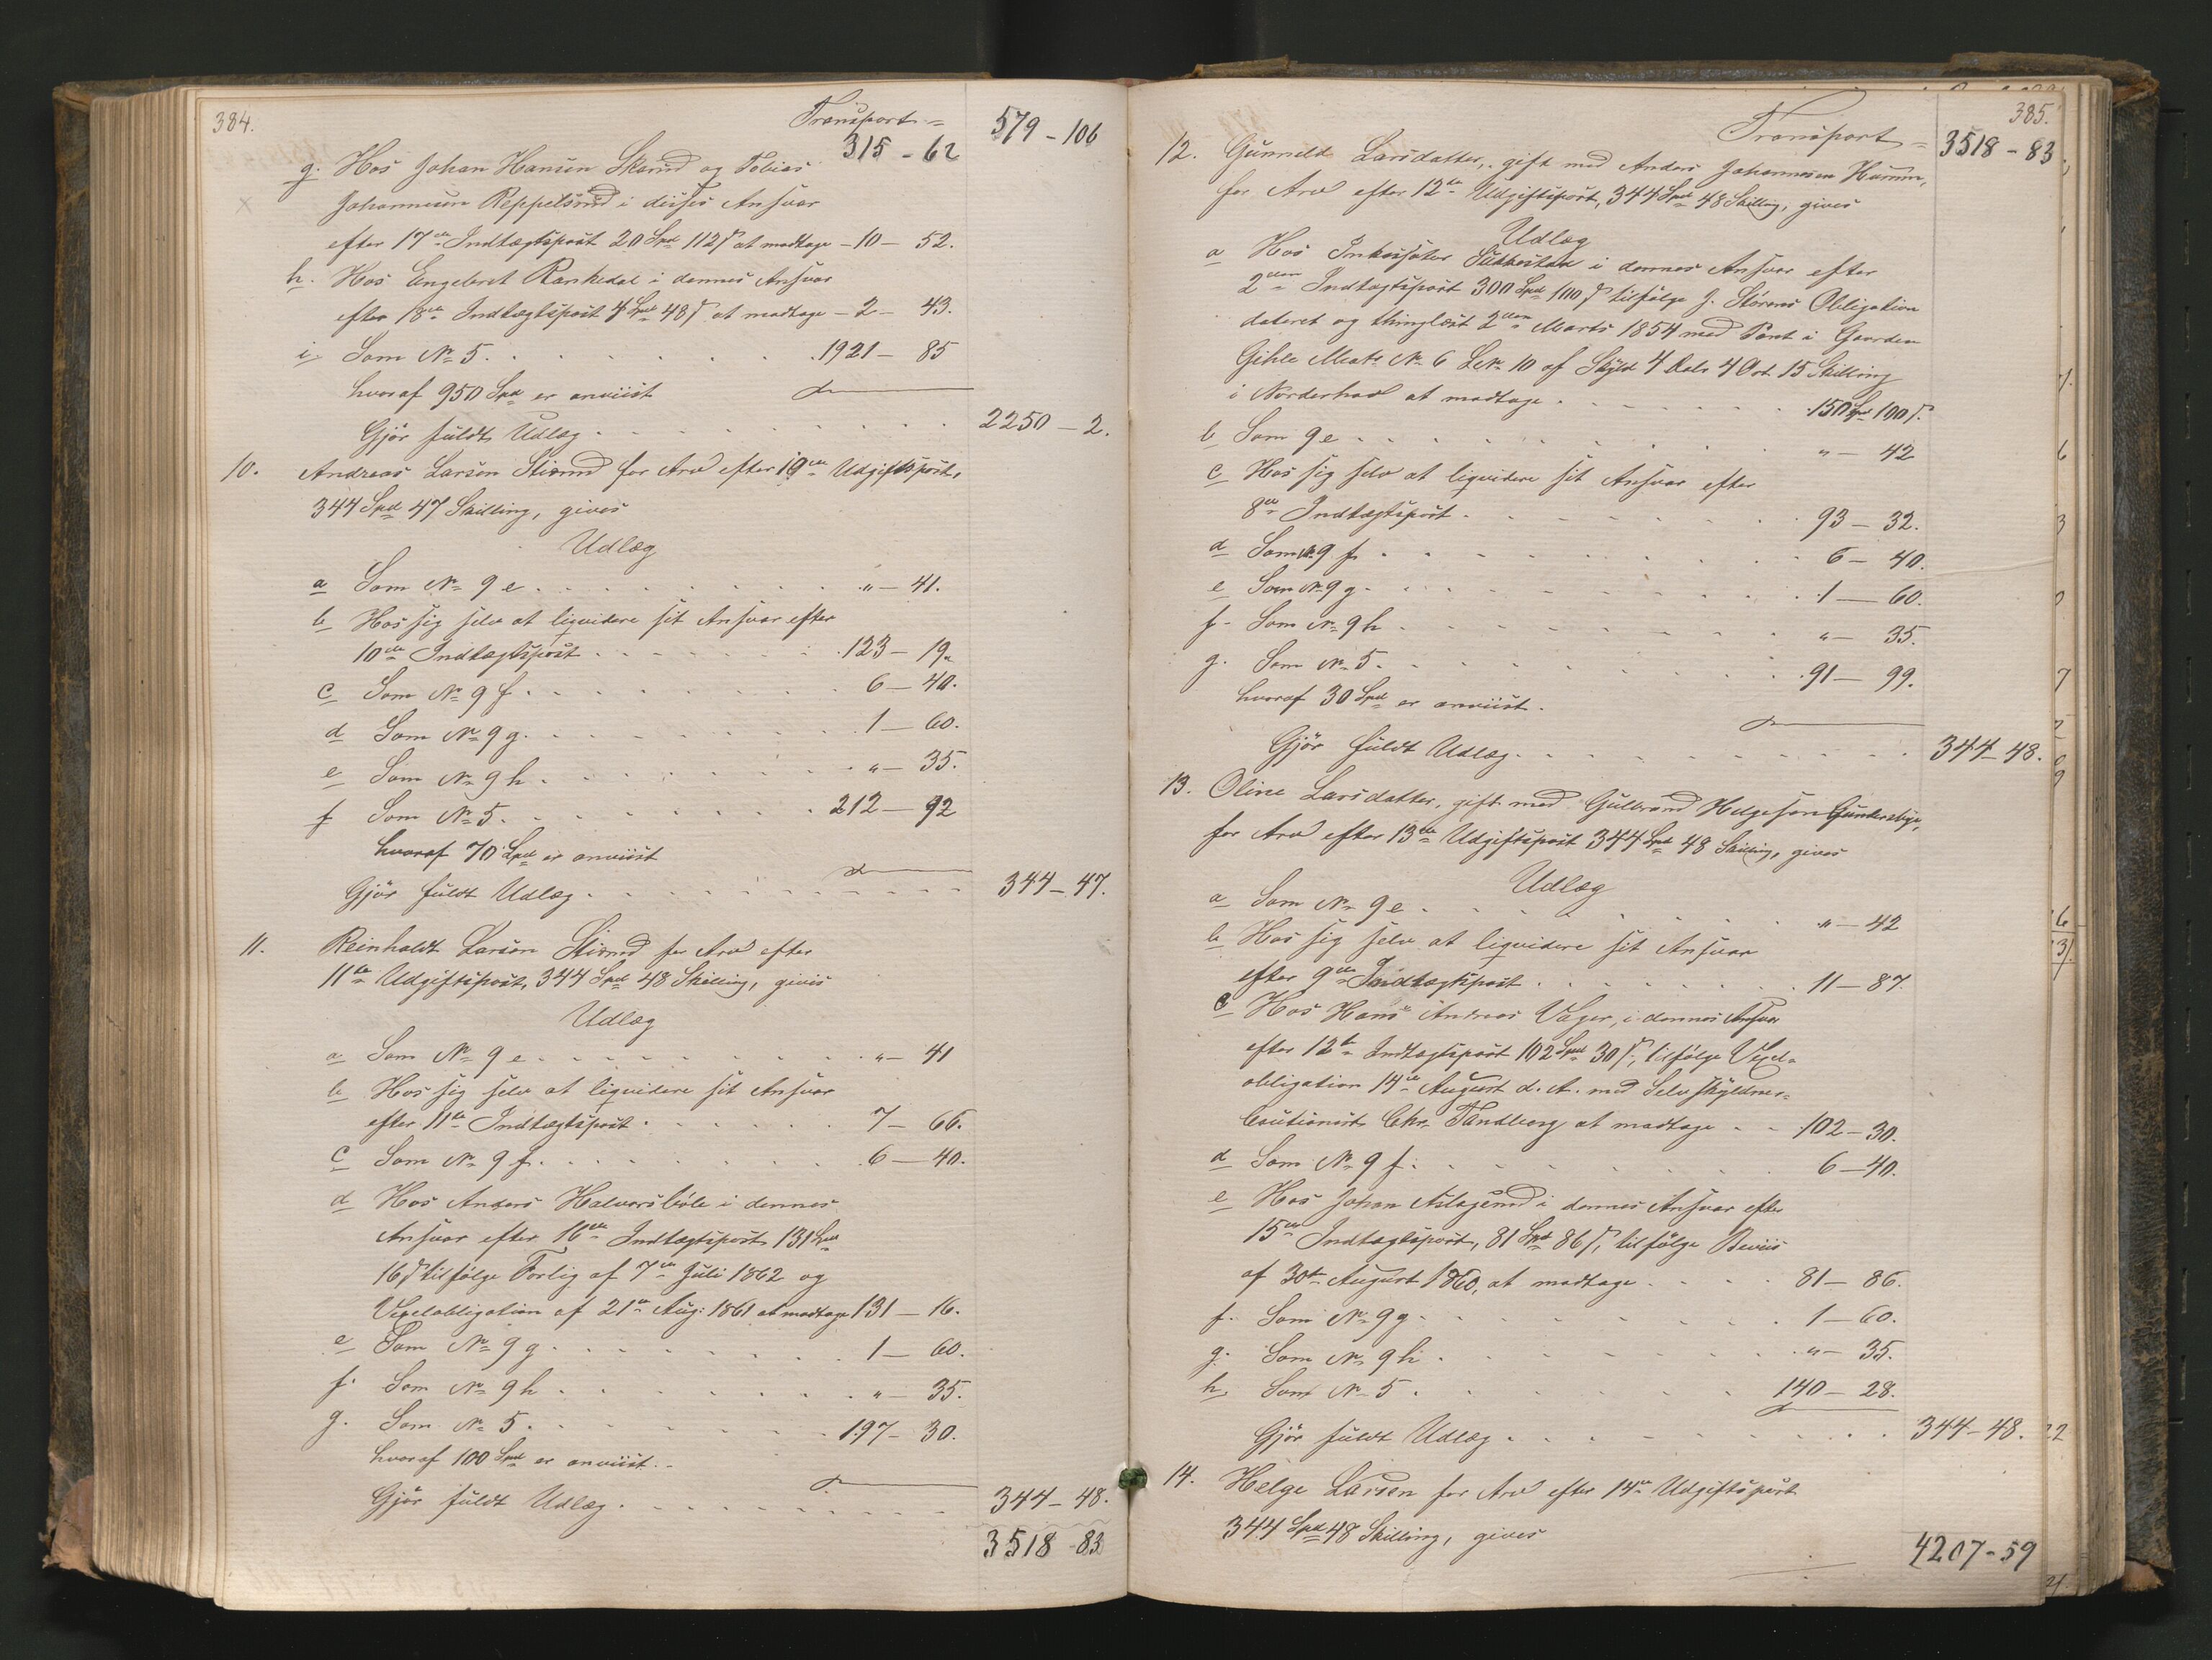 384.
Transport =
315 - 62
579 - 106
g. Hos Johan Hansen Skarud og Tobias
Johannesen Reppelsrud i disses Ansvar
efter 17de Indtægtspost 20 Spd 112 ß at modtage - 10 - 52.
h. Hos Engebret Rankedal i dennes Ansvar
efter 18de Indtægtspost 4 Spd 48 ß at modtage - 2 - 43.
i. Som No 5. 1921 - 85
hvoraf 950 Spd er anviist
Gjör fuldt Udlæg 2250 - 2.
10. Andreas Larsen Stixrud for Arv efter 10de Udgiftspost,
344 Spd 47 Skilling, gives
Udlæg
a Som No 9 e „ - 41.
b Hos sig selv at liqvidere sit Ansvar efter
10de Indtægtspost 123 - 19.
c Som No 9 f. 6 - 40.
d Som No 9 g. 1 - 60.
e Som No 9 h. „ - 35.
f Som No 5. 212 - 92
hvoraf 70 Spd er anviist
Gjör fuldt Udlæg 344 - 47.
11. Reinholdt Larsen Stixrud for Arv efter
11te Udgiftspost, 344 Spd 48 Skilling, gives
Udlæg
a Som No 9 e „ - 41
b Hos sig selv at liqvidere sit Ansvar
efter 11te Indtægtspost 7 - 66.
c Som No 9 f. 6 - 40.
d Hos Anders Halvorsböle i dennes
Ansvar efter 16de Indtægtspost 131 Spd
16 ß tilfölge Forlig af 7de Juli 1862 og
Vexelobligation af 21de Aug: 1861 at modtage 131 - 16.
e Som No 9 g. 1 - 60.
f. Som No 9 h „ - 35.
g. Som No 5. 197 - 30.
hvoraf 100 Spd er anviist.
Gjör fuldt Udlæg 344 - 48.
3518 - 83
385.
Transport = 3518 - 83
12. Gunnild Larsdatter, gift med Anders Johannesen Hurum,
for Arv efter 12te Udgiftspost, 344 Spd 48 Skilling, gives
Udlæg
a Hos Inkassator i dennes Ansvar efter
2den Indtægtspost 300 Spd 100 ß tilfölge J. Störens Obligation
dateret og thinglæst 2den Marts 1854 med Pant i Gaarden
Gihle Matr No 6 LNo 10 af Skyld 4 Dalr 4 Ort 15 Skilling
i Norderhov at modtage 150 Spd 100 ß.
b Som 9 e „ - 42
c Hos sig selv at liqvidere sit Ansvar efter
8de Indtægtspost 93 - 32.
d Som No 9 f 6 - 40.
e Som No 9 g. 1 - 60.
f. Som No 9 h „ - 35.
g. Som No 5. 91 - 99.
hvoraf 30 Spd er anviist.
Gjör fuldt Udlæg 344 - 48.
13. Oline Larsdatter, gift med Gulbrand Helgesen Gundersbye,
for Arv efter 13de Udgiftspost 344 Spd 48 Skilling, gives
Udlæg
a Som No 9 e „ - 42
b Hos sig selv at liqvidere sit Ansvar
efter 9de Indtægtspost 11 - 87.
c Hos Hans Andreas Vager, i dennes Ansvar
efter 12te Indtægtspost 102 Spd 30 ß, tilfölge Vexel=
obligation 14de August d. A. med Selvskyldner=
Cautionist Chr. Tandberg at modtage 102 - 30.
d Som No 9 f. 6 - 40.
e Hos Johan Aslagsrud i dennes Ansvar efter
15de Indtægtspost, 81 Spd 86 ß, tilfölge Beviis
af 30te August 1860, at modtage 81 - 86.
f. Som No 9 g. 1 - 60.
g. Som No 9 h. „ - 35.
h. Som No 5. 140 - 28.
Gjör fuldt Udlæg 344 - 48.
14. Helge Larsen for Arv efter 14de Udgiftspost
344 Spd 48 Skilling, gives
4207 - 59